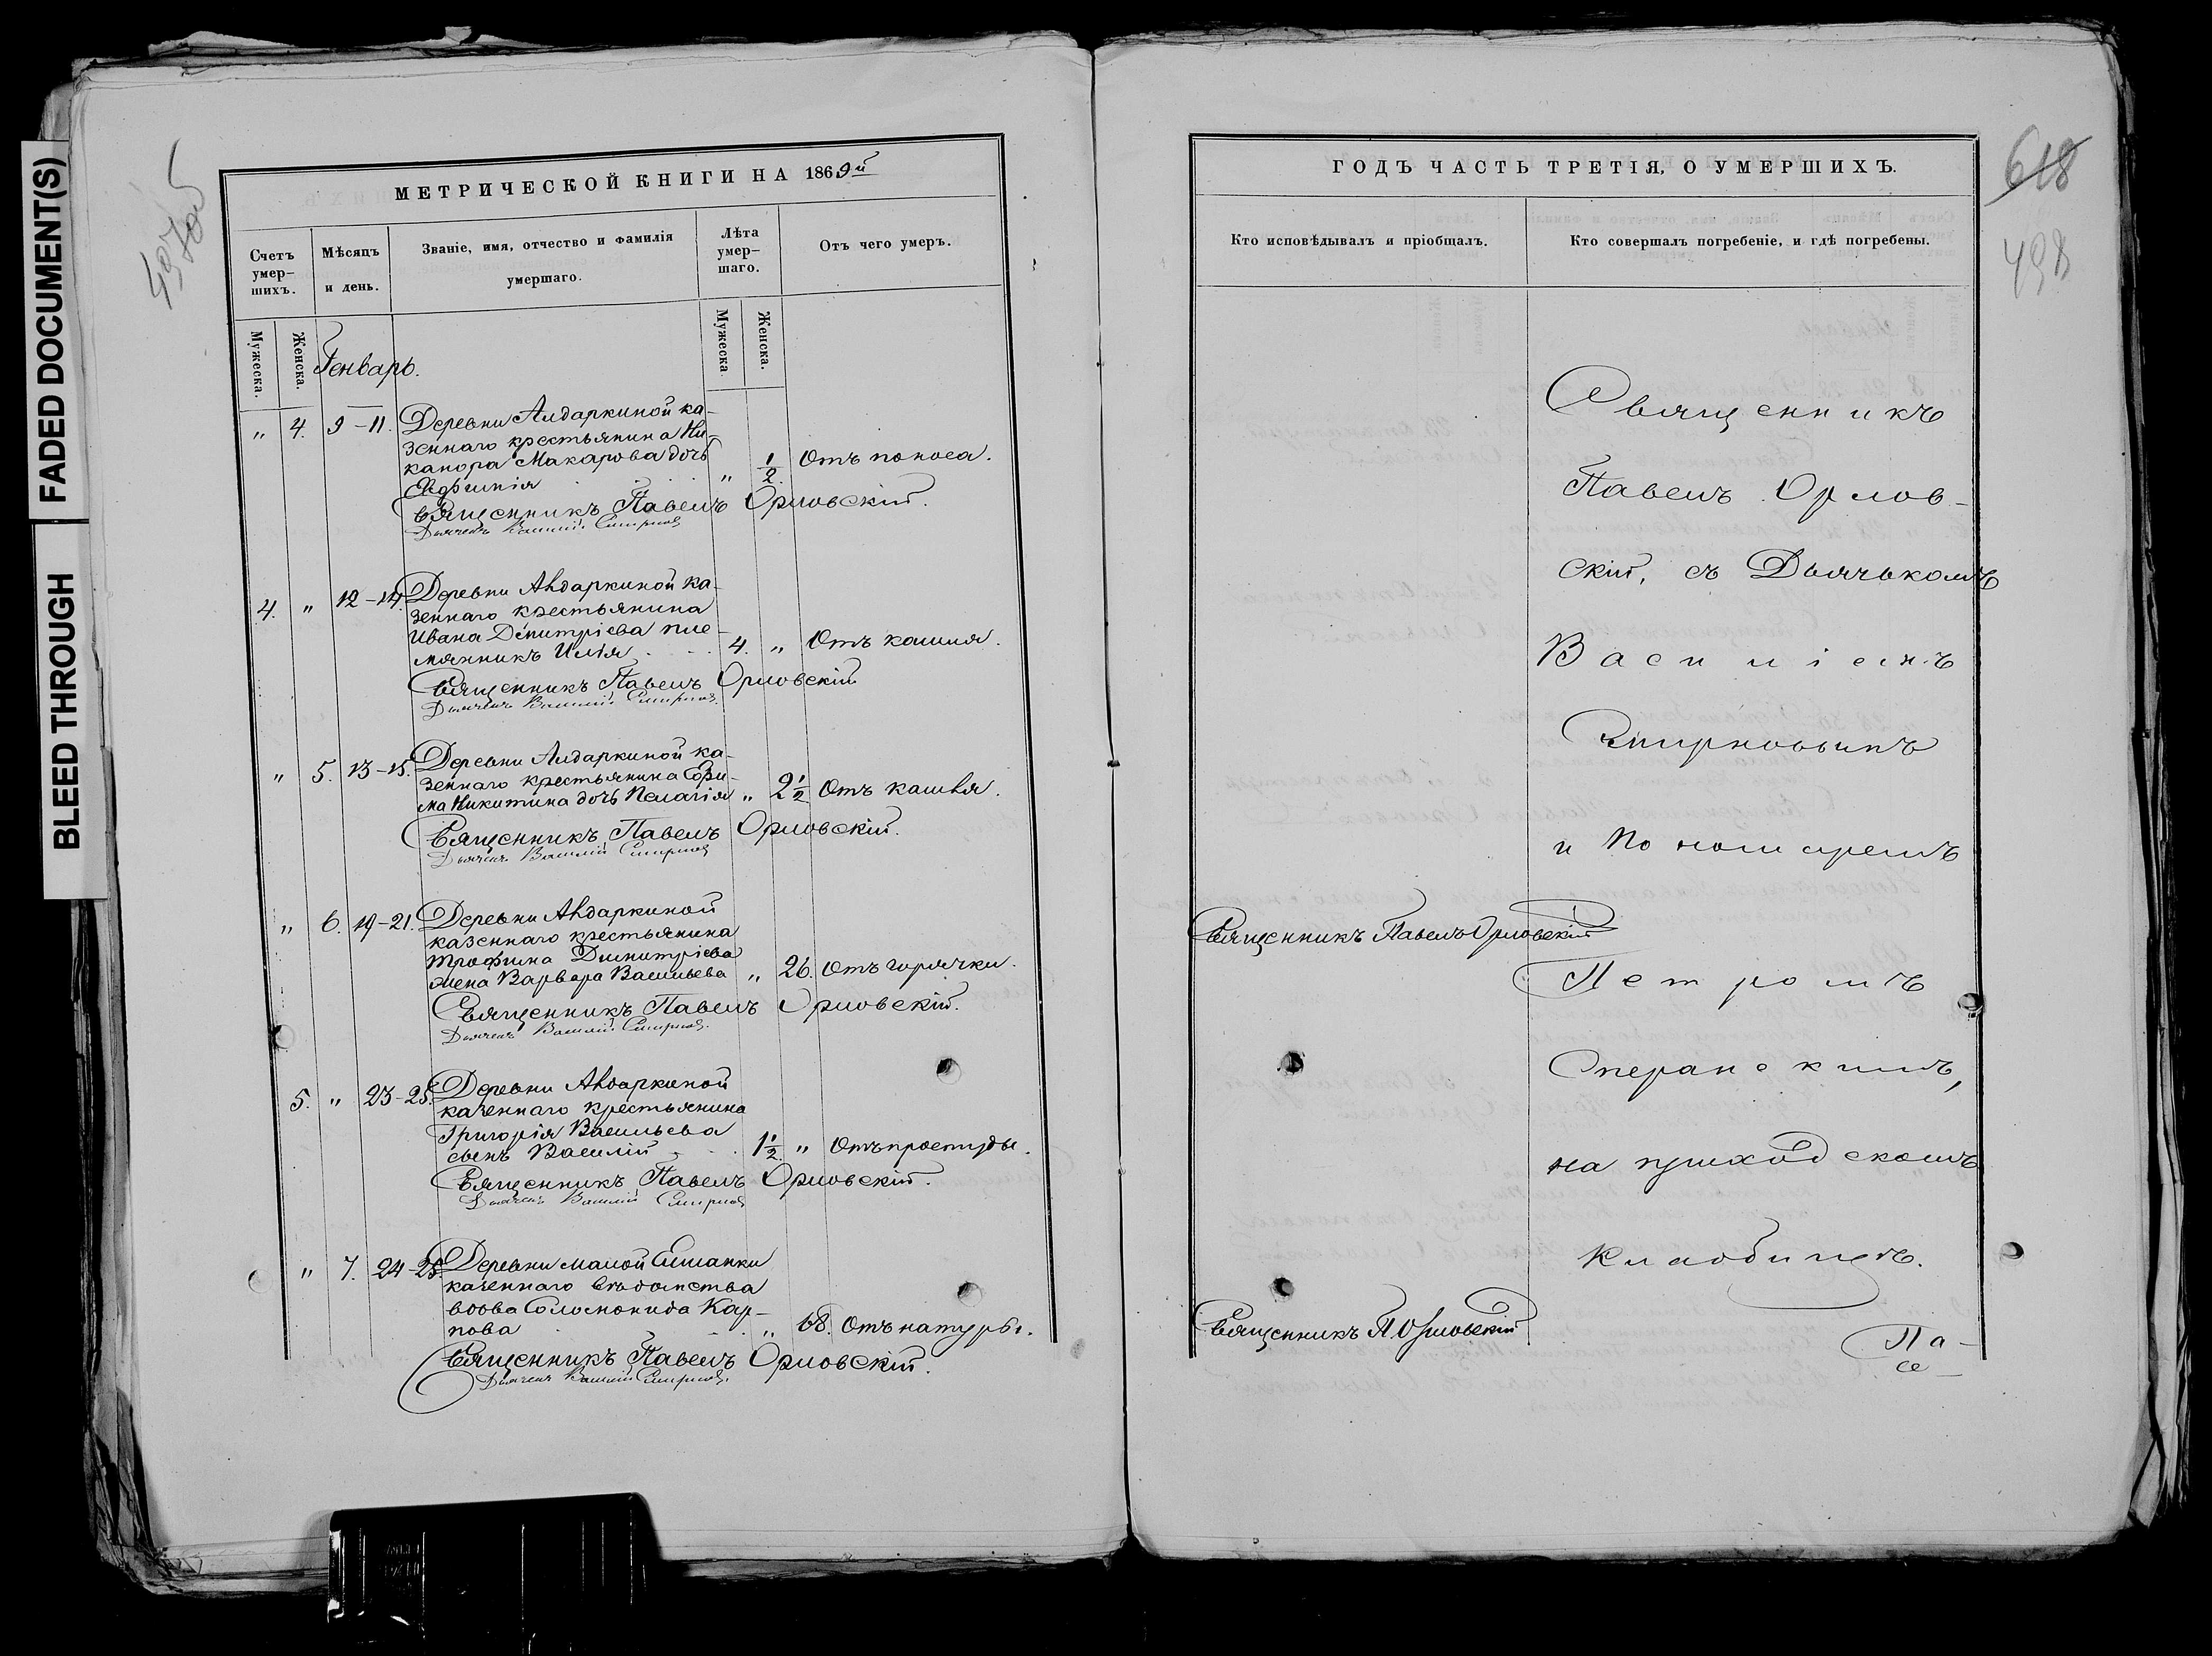 FADED DOCUMENT(S)
BLEED THROUGH
МЕТРИЧЕСКОЙ КНИГИ НА 1869й
Счетъ умер-шихъ.
Мѣсяцъ и день.
Званіе, имя, отчество и фамилія умершаго.
Лѣта умер-шаго.
Отъ чего умеръ.
Мужеска.
Женска.
Генварь.
Мужеска
Женска.
„ 4. 9-11. Деревни Алдаркиной ка-
зеннаго крестьянина Ни-
канора Макарова дочь
Евфимія „ 1/2 Отъ поноса.
Священникъ Павелъ Орловскій.
Дьячекъ Василій Смирновъ
4. „ 12-14. Деревни Авдаркиной ка-
зеннаго крестьянина
Ивана Димитріева пле-
мянникъ Илія 4. „ Отъ кашля.
Священникъ Павелъ Орловскій
Дьячекъ Василій Смирновъ.
„ 5. 13-15. Деревни Алдаркиной ка-
зеннаго крестьянина Ефи-
ма Никитина дочь Пелагія „ 2 1/2 Отъ кашля.
Священникъ Павелъ Орловскій.
Дьячекъ Василій Смирновъ
„ 6. 19-21. Деревни Авдаркиной
казеннаго крестьянина
Трофима Димитріева
жена Варвара Васильева „ 26. Отъ горячки.
Священникъ Павелъ Орловскій.
Дьячекъ Василій Смирновъ.
5. „ 23-25. Деревни Авдаркиной
казеннаго крестьянина
Григорія Васильева
сынъ Василій 1 1/2. „ Отъ простуды.
Священникъ Павелъ Орловскій.
Дьячекъ Василій Смирновъ
„ 7. 24-25. Деревни Малой
казеннаго вѣдомства
вдова Соломонида Кар-
пова „ 68. Отъ натуры.
Священникъ Павелъ Орловскій.
Дьячекъ Василій Смирновъ.
ГОДЪ ЧАСТЬ ТРЕТІЯ, О УМЕРШИХЪ.
618
498
Кто исповѣдывалъ и пріобщалъ.
Кто совершалъ погребеніе, и гдѣ погребены.
Священникъ
Павелъ Орлов-
скій, съ Дьячькомъ
Василіемъ
Смирновымъ
и Пономаремъ
Священникъ Павелъ Орловскій
Петромъ
Сперанскимъ,
на приходскомъ
кладбищѣ.
Священникъ П. Орловскій
Па-
се-